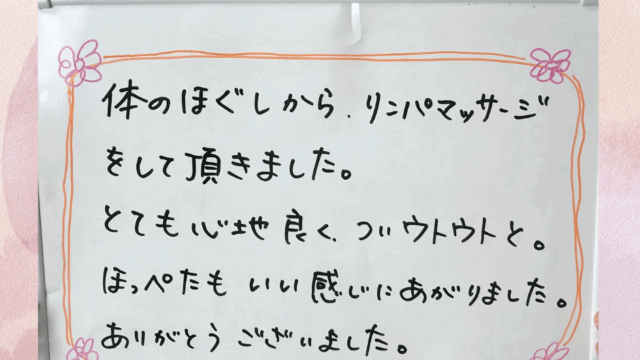 体のほぐしから、リンパマッサージ
をして頂きました。
とても心地良く、ついウトウトと。
ほっぺたもいい感じにあがりました。
ありがとうございました。